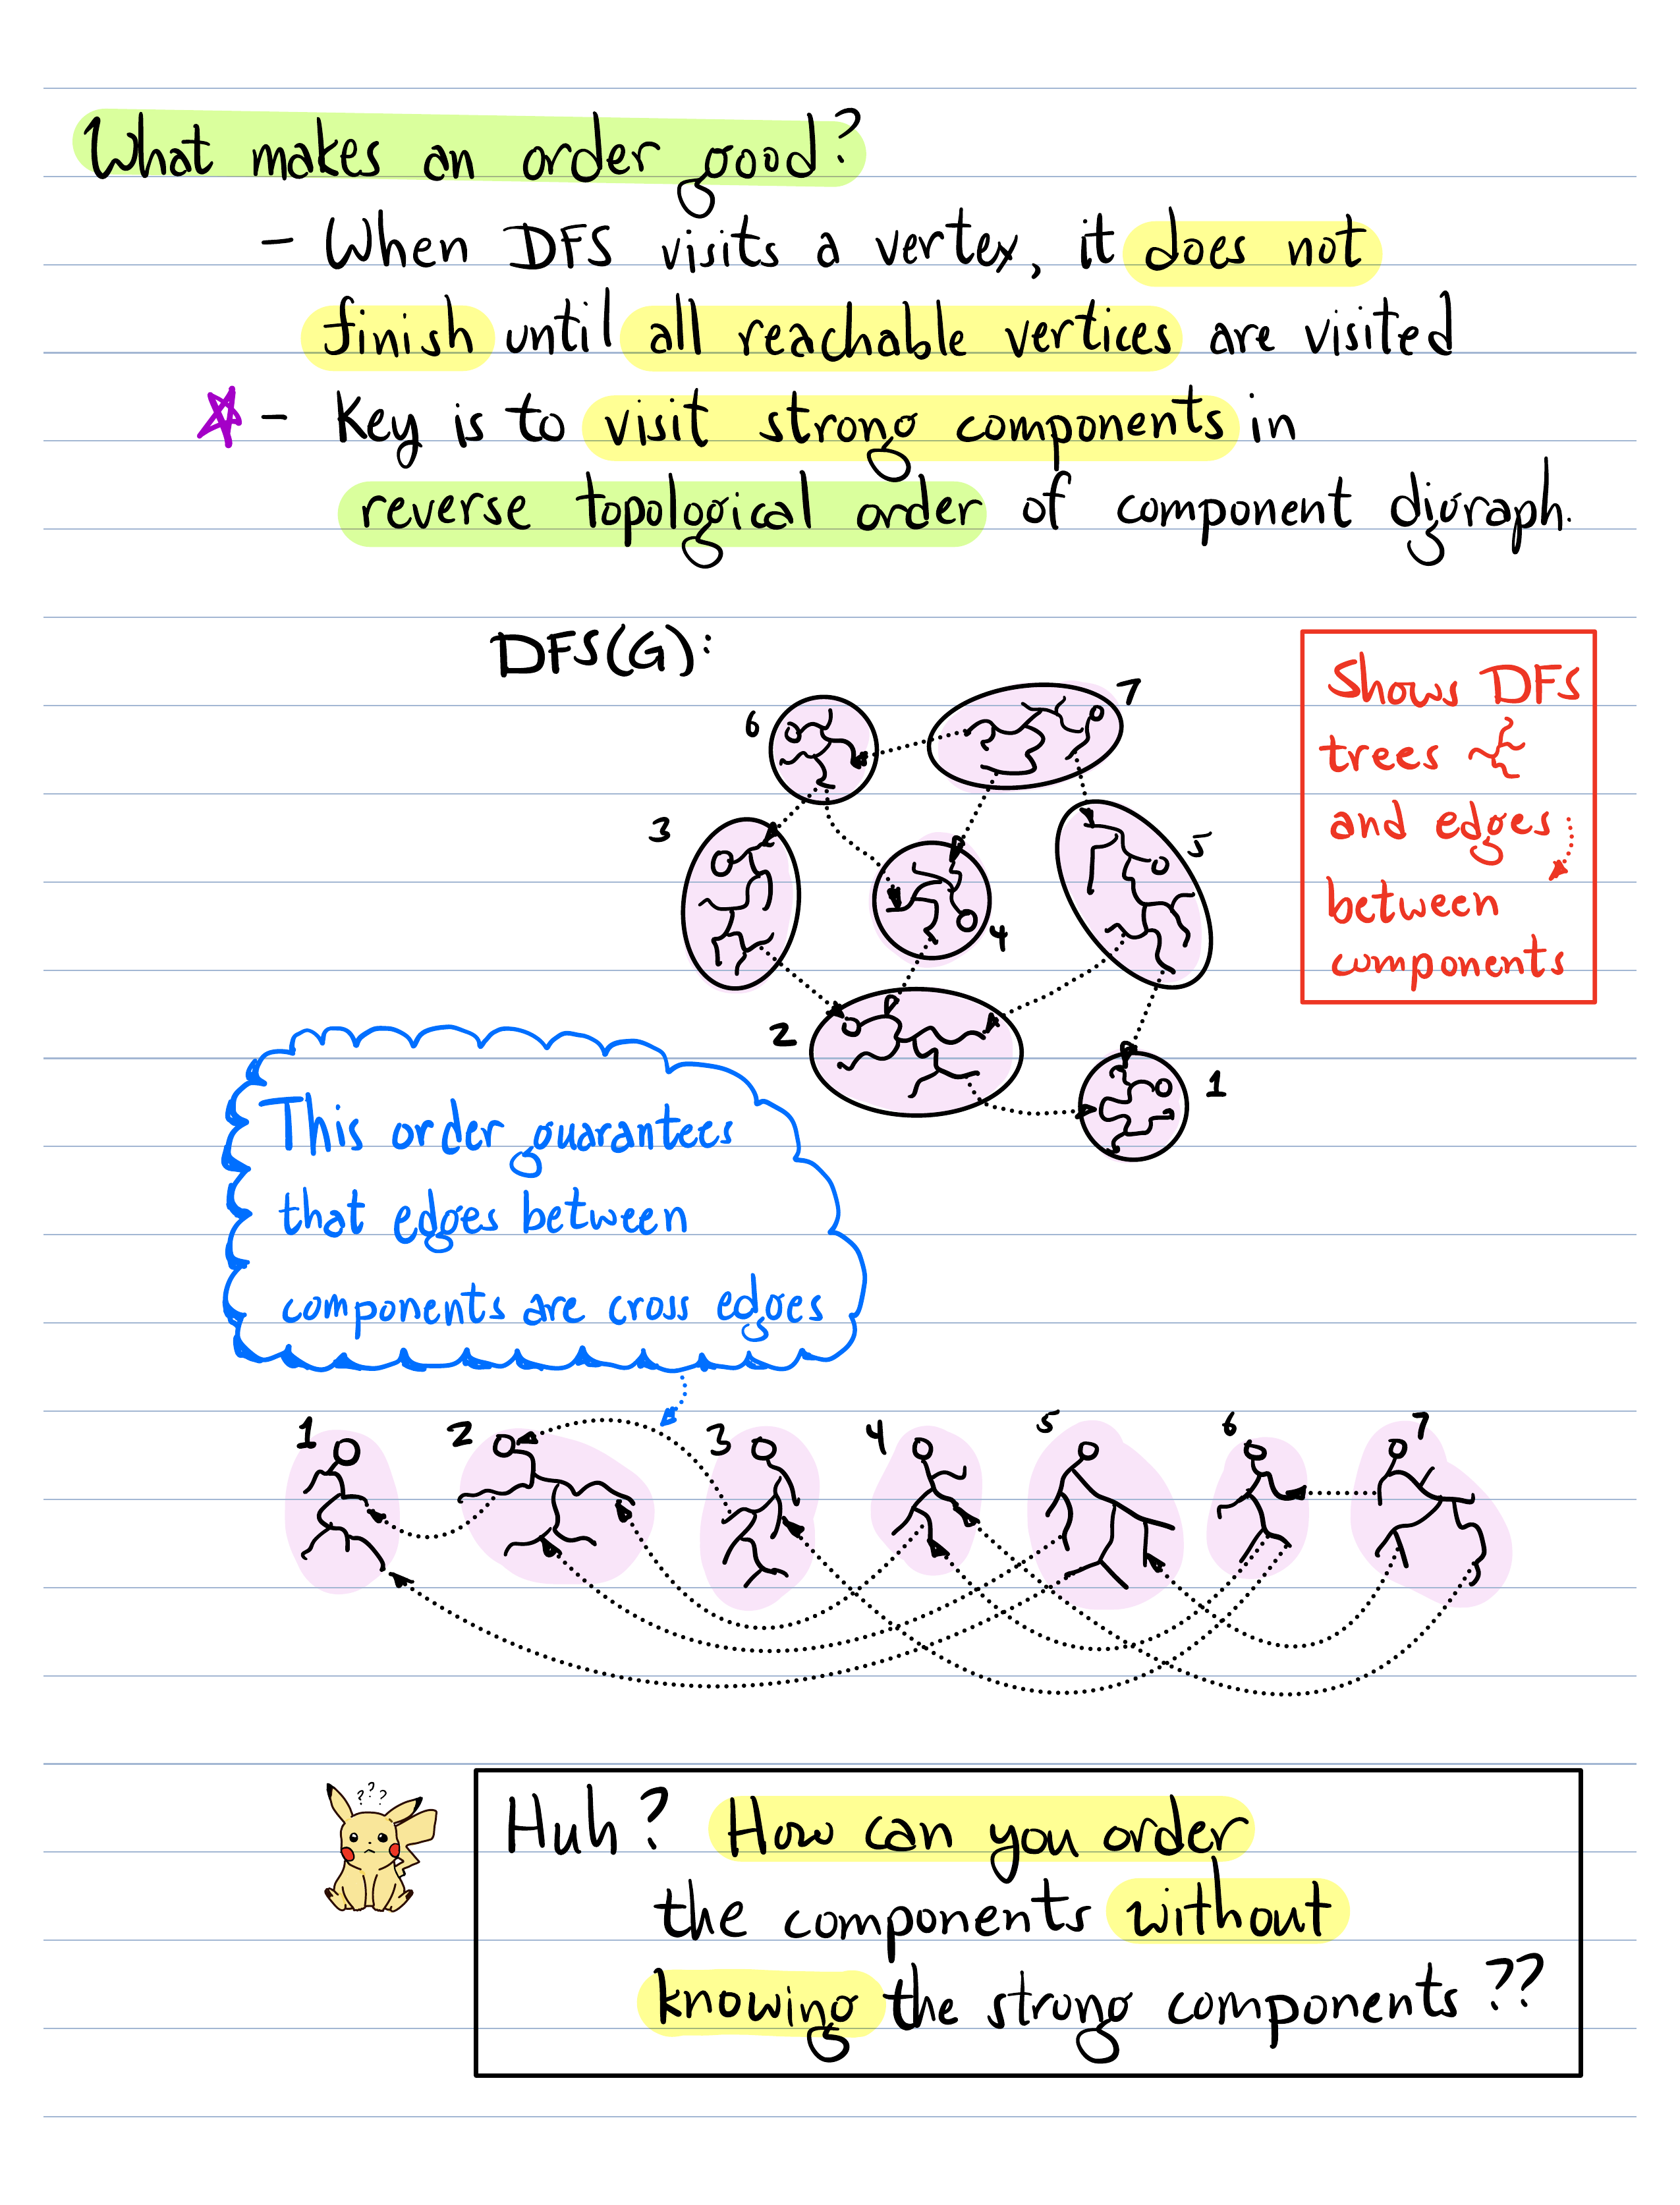 What makes an order good?
- When DFS visits a vertex, it does not
finish until all reachable vertices are visited
- Key is to visit strong components in
reverse topological order of component digraph.
DFS(G):
Shows DFS
trees
and edges
between
components
6
7
3
4
5
2
1
This order guarantees
that edges between
components are cross edges
1 2 3 4 5 6 7
???
Huh? How can you order
the components without
knowing the strong components ??